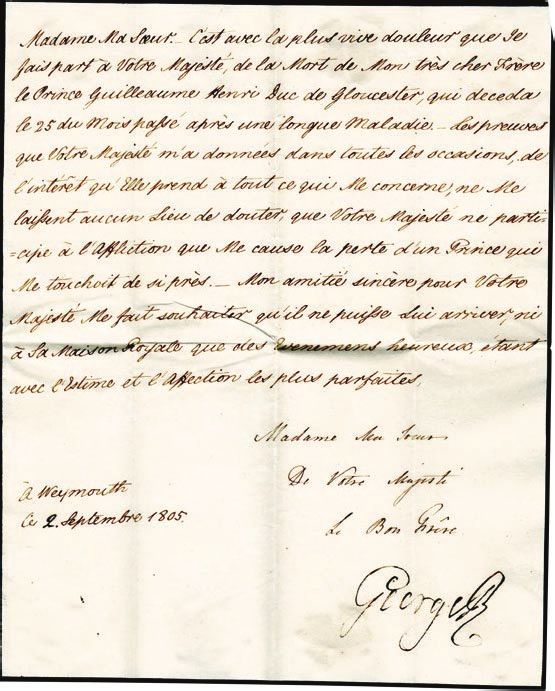 Madame Ma Sœur._ C'est avec la plus vive douleur que Je
fais part à Votre Majesté, de la Mort de Mon très cher Frère
le Prince Guilleaume Henri Duc de Gloucester, qui deceda
le 25 du Mois passé après une longue Maladie._ Les preuves
que Votre Majesté m'a données dans toutes les occasions, de
l'intérêt qu'Elle prend à tout ce qui Me concerne, ne Me
laissent aucun Lieu de douter, que Votre Majesté ne parti=
=cipe à l'Affliction que Me cause la perte d'un Prince qui
Me touchoit de si près._ Mon amitié sincère pour Votre
Majesté Me fait souhaiter qu'il ne puisse Lui arriver, ni
à Sa Maison Royale que des Evenemens heureux, étant
avec l'Estime et l'Affection les plus parfaites,
Madame Ma Sœur
De Votre Majesté
Le Bon Frère
à Weymouth
ce 2. Septembre 1805.
George R